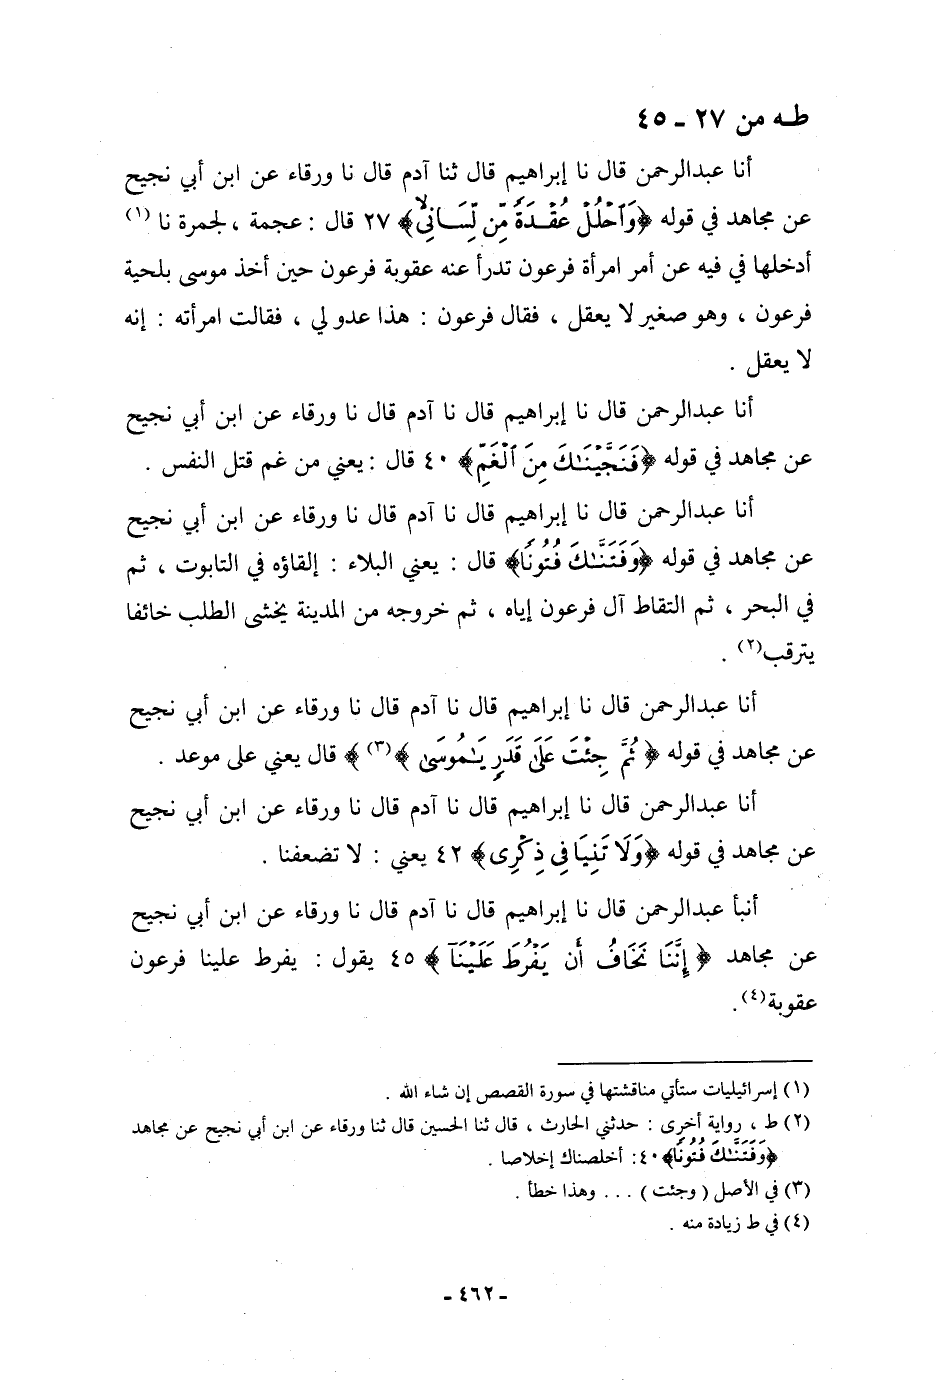 طـه من ٢٧ - ٤٥
أنا عبدالرحمن قال نا إبراهيم قال ثنا آدم قال نا ورقاء عن ابن أبي نجيح
عن مجاهد في قوله ﴿وَٱحْلُلْ عُقْدَةً مِّن لِّسَانِى﴾ ٢٧ قال : عجمة ، لجمرة نا (١)
أدخلها في فيه عن أمر امرأة فرعون تدرأ عنه عقوبة فرعون حين أخذ موسى بلحية
فرعون ، وهو صغير لا يعقل ، فقال فرعون : هذا عدو لي ، فقالت امرأته : إنه
لا يعقل .
أنا عبدالرحمن قال نا إبراهيم قال نا آدم قال نا ورقاء عن ابن أبي نجيح
عن مجاهد في قوله ﴿فَنَجَّيْنَٰكَ مِنَ ٱلْغَمِّ﴾ ٤٠ قال : يعني من غم قتل النفس .
أنا عبدالرحمن قال نا إبراهيم قال نا آدم قال نا ورقاء عن ابن أبي نجيح
عن مجاهد في قوله ﴿وَفَتَنَّٰكَ فُتُونًا﴾ قال : يعني البلاء : إلقاؤه في التابوت ، ثم
في البحر ، ثم التقاط آل فرعون إياه ، ثم خروجه من المدينة يخشى الطلب خائفا
يترقب(٢) .
أنا عبدالرحمن قال نا إبراهيم قال نا آدم قال نا ورقاء عن ابن أبي نجيح
عن مجاهد في قوله ﴿ ثُمَّ جِئْتَ عَلَىٰ قَدَرٍ يَٰمُوسَىٰ ﴾(٣) ﴾ قال يعني على موعد .
أنا عبدالرحمن قال نا إبراهيم قال نا آدم قال نا ورقاء عن ابن أبي نجيح
عن مجاهد في قوله ﴿وَلَا تَنِيَا فِى ذِكْرِى﴾ ٤٢ يعني : لا تضعفنا .
أنبأ عبدالرحمن قال نا إبراهيم قال نا آدم قال نا ورقاء عن ابن أبي نجيح
عن مجاهد ﴿ إِنَّنَا نَخَافُ أَن يَفْرُطَ عَلَيْنَآ ﴾ ٤٥ يقول : يفرط علينا فرعون
عقوبة(٤).
(١) إسرائيليات ستأتي مناقشتها في سورة القصص إن شاء الله .
(٢) ط ، رواية أخرى : حدثني الحارث ، قال ثنا الحسين قال ثنا ورقاء عن ابن أبي نجيح عن مجاهد
﴿وَفَتَنَّٰكَ فُتُونًا﴾ ٤٠: أخلصناك إخلاصا .
(٣) في الأصل ( وجئت ) . . . وهذا خطأ .
(٤) في ط زيادة منه .
- ٤٦٢ -